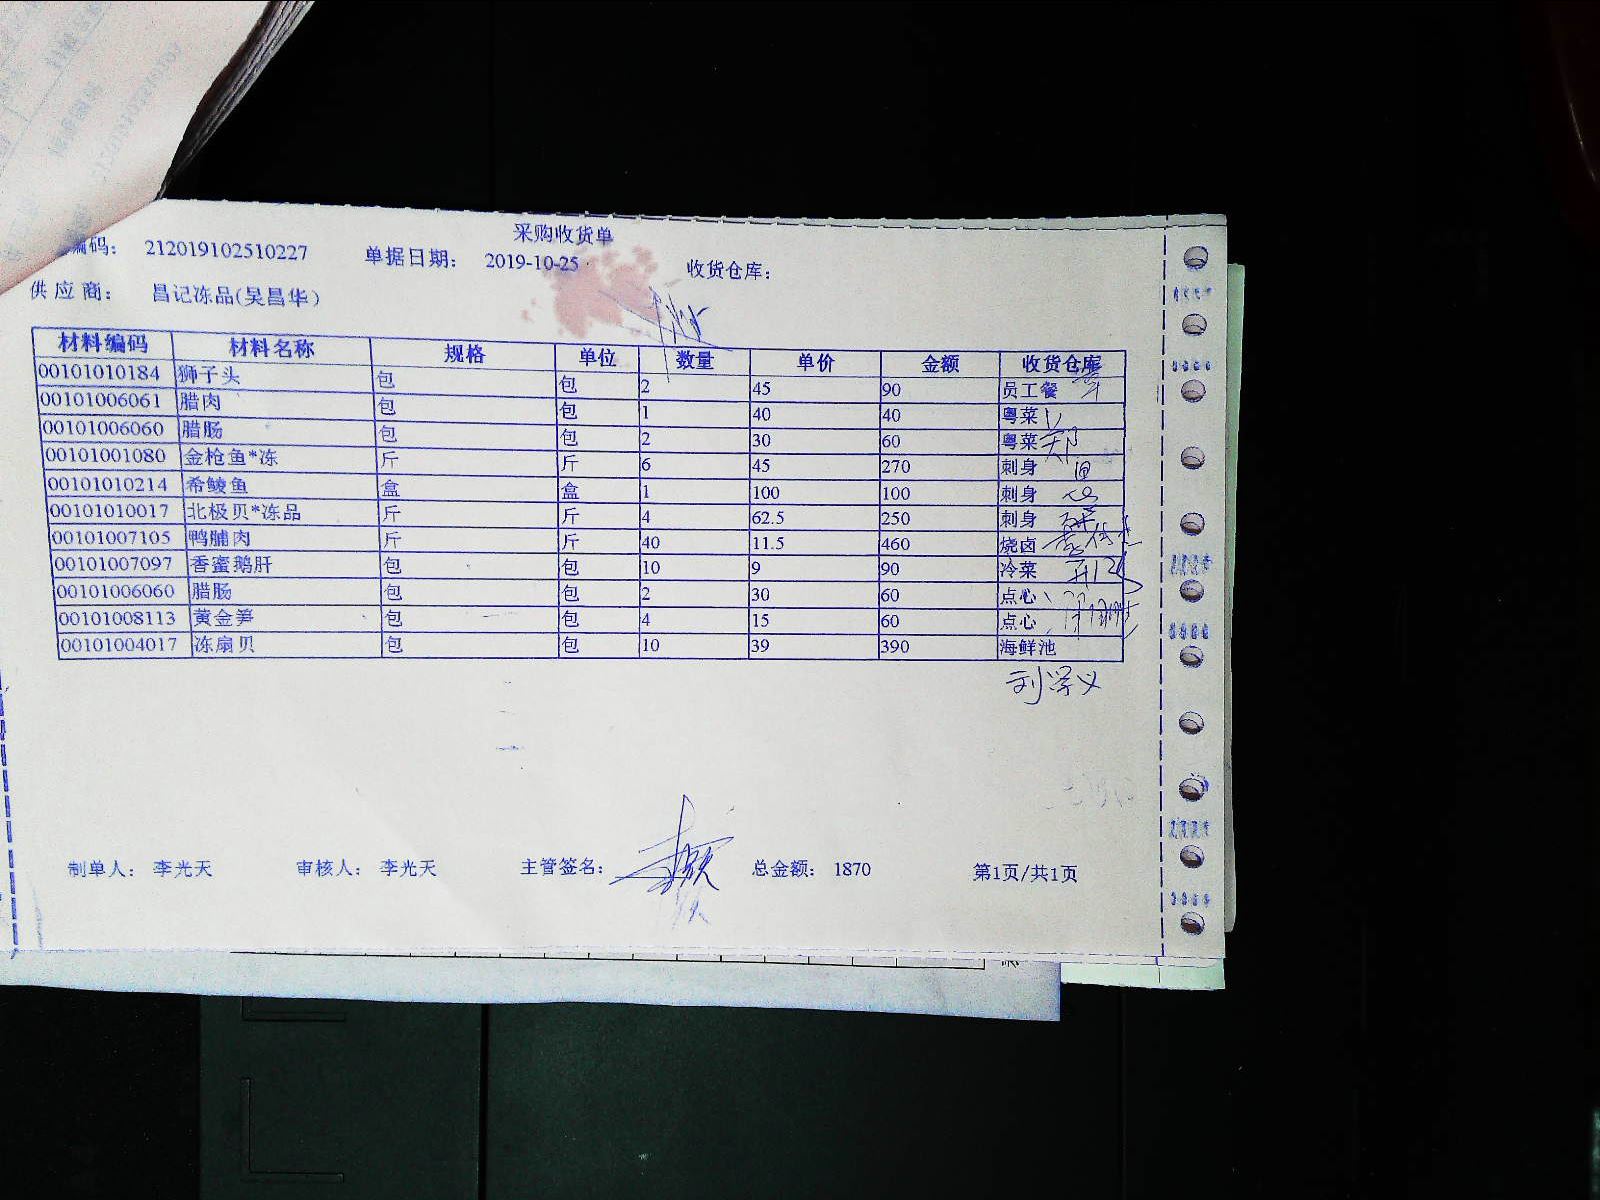 采购收货单
编码： 212019102510227 单据日期： 2019-10-25 收货仓库：
供应商： 昌记冻品(吴昌华)
材料编码 材料名称 规格 单位 数量 单价 金额 收货仓库
00101010184 狮子头 包 包 2 45 90 员工餐
00101006061 腊肉 包 包 1 40 40 粤菜
00101006060 腊肠 包 包 2 30 60 粤菜
00101001080 金枪鱼*冻 斤 斤 6 45 270 刺身
00101010214 希鲮鱼 盒 盒 1 100 100 刺身
00101010017 北极贝*冻品 斤 斤 4 62.5 250 刺身
00101007105 鸭脯肉 斤 斤 40 11.5 460 烧卤
00101007097 香蜜鹅肝 包 包 10 9 90 冷菜
00101006060 腊肠 包 包 2 30 60 点心
00101008113 黄金笋 包 包 4 15 60 点心
00101004017 冻扇贝 包 包 10 39 390 海鲜池
刘学义
制单人： 李光天 审核人： 李光天 主管签名： 总金额： 1870 第1页/共1页